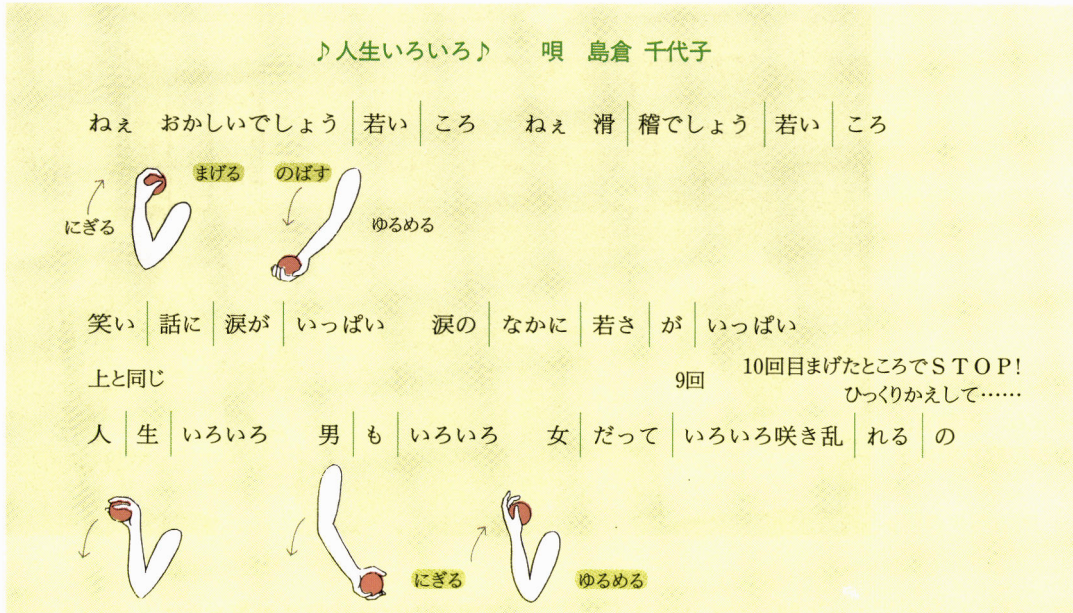 ♪人生いろいろ♪　唄　島倉 千代子
ねぇ　おかしいでしょう｜若い｜ころ　ねぇ　滑｜稽でしょう｜若い｜ころ
まげる　のばす
にぎる　ゆるめる
笑い｜話に｜涙が｜いっぱい　涙の｜なかに｜若さ｜が｜いっぱい
上と同じ　9回　10回目まげたところでＳＴＯＰ!
ひっくりかえして……
人｜生｜いろいろ　男｜も｜いろいろ　女｜だって｜いろいろ咲き乱｜れる｜の
にぎる　ゆるめる